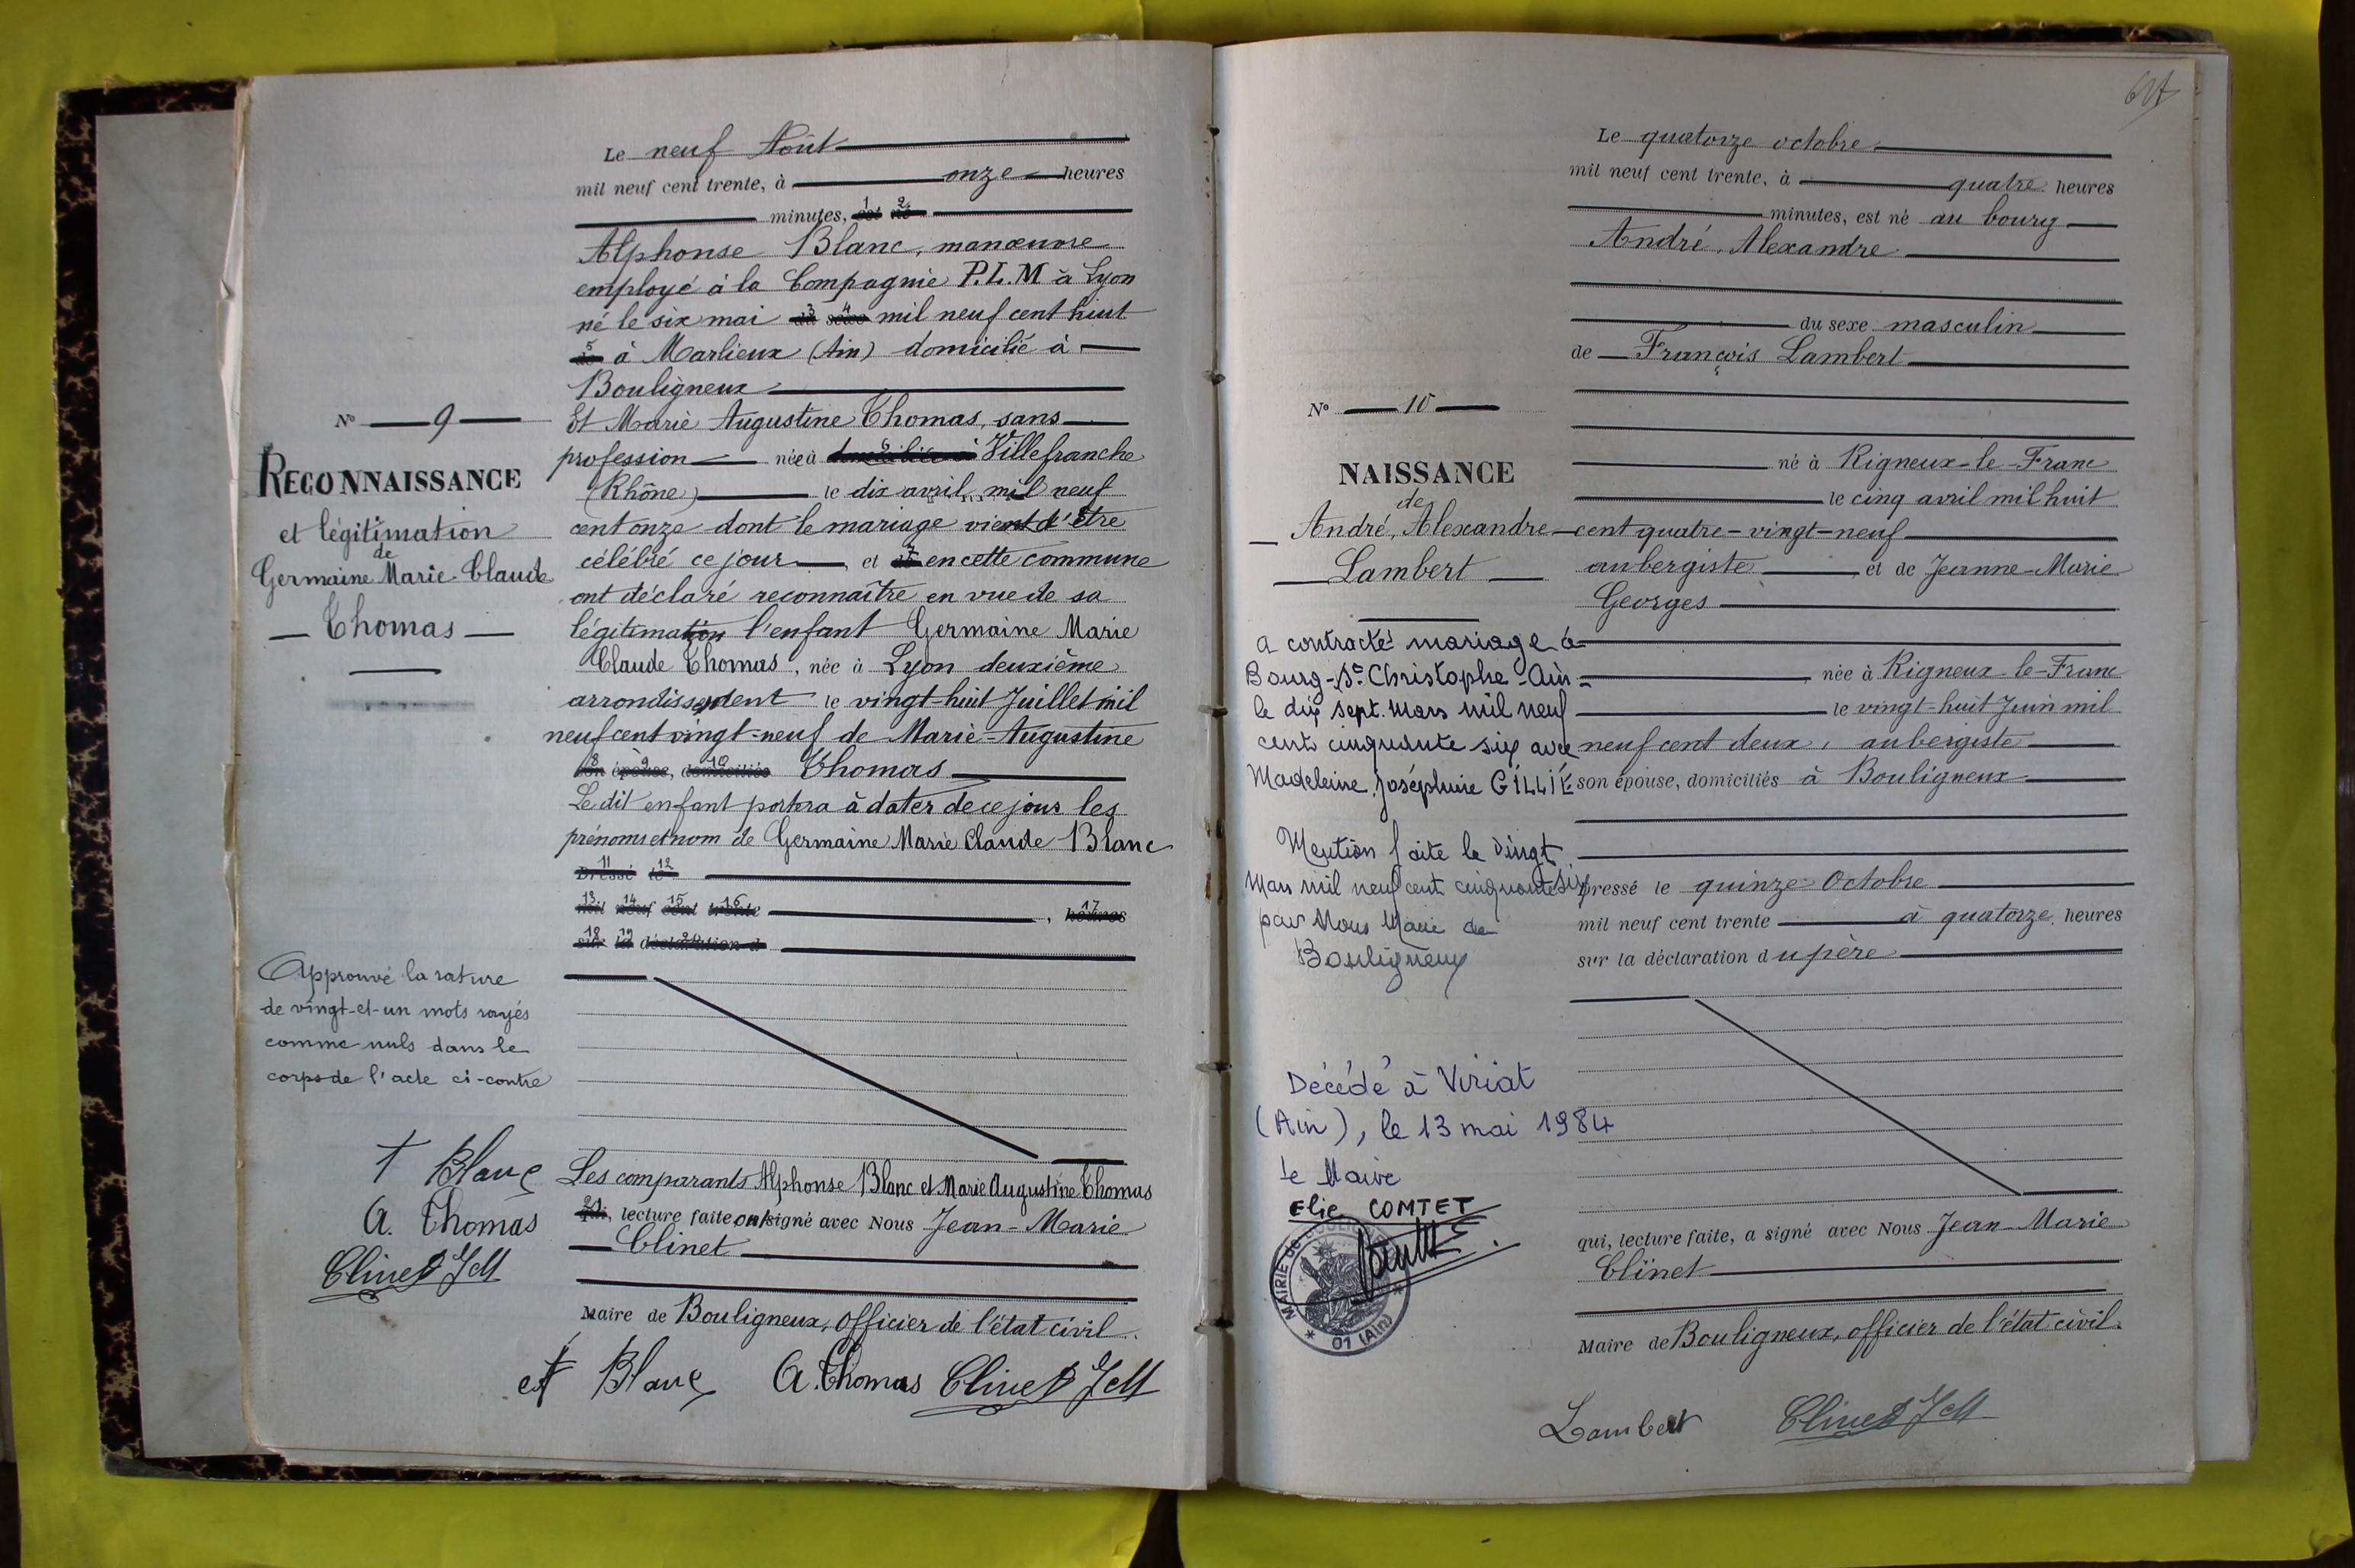 Le neuf Août
mil neuf cent trente, à onze heures
minutes, est né
Alphonse Blanc, manœuvre
employé à la Compagnie P.L.M à Lyon
né le six mai du sexe mil neuf cent huit
de à Marlieux (Ain) domicilié à
Bouligneux
Et Marie Augustine Thomas, sans
profession née à domiciliée à Villefranche
(Rhône) le dix avril mil neuf
cent onze dont le mariage vient d'être
célébré ce jour, et de en cette commune
ont déclaré reconnaître en vue de sa
légitimation l'enfant Germaine Marie
Claude Thomas, née à Lyon deuxième
arrondissement le vingt-huit Juillet mil
neuf cent vingt-neuf de Marie-Augustine
son épouse, domiciliés Thomas
Le dit enfant portera à dater de ce jour les
prénoms et nom de Germaine Marie Claude Blanc
Dressé le
mil neuf cent trente, heures
sur la déclaration d
Les comparants Alphonse Blanc et Marie Augustine Thomas
qui, lecture faite ont signé avec Nous Jean-Marie
Clinet
Maire de Bouligneux, officier de l'état civil.
Blanc A. Thomas Clinet JM
N° 9
RECONNAISSANCE
et légitimation
de
Germaine Marie Claude
Thomas
Approuvé la rature
de vingt-et-un mots rayés
comme nuls dans le
corps de l'acte ci-contre
Blanc
A. Thomas
Clinet JM
Le quatorze octobre
mil neuf cent trente, à quatre heures
minutes, est né au bourg
André, Alexandre
du sexe masculin
de François Lambert
né à Rigneux-le-Franc
le cinq avril mil huit
cent quatre-vingt-neuf
aubergiste et de Jeanne-Marie
Georges
née à Rigneux-le-Franc
le vingt-huit Juin mil
neuf cent deux, aubergiste
son épouse, domiciliés à Bouligneux
Dressé le quinze Octobre
mil neuf cent trente à quatorze heures
sur la déclaration du père
qui, lecture faite, a signé avec Nous Jean-Marie
Clinet
Maire de Bouligneux, officier de l'état civil.
Lambert Clinet JM
N° 10
NAISSANCE
de
André, Alexandre
Lambert
a contracté mariage à
Bourg-St Christophe-Ain-
le dix sept. Mars mil neuf
cent cinquante six avec
Madeleine Joséphine
Mention faite le vingt
Mars mil neuf cent cinquante six
par Nous Maire de
Bouligneux
Décédé à Viriat
(Ain), le 13 mai 1984
Le Maire
Elie COMTET
MAIRIE DE BOULIGNEUX
01 (Ain)